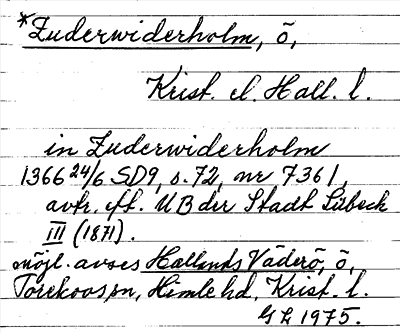 *Zuderwiderholm, ö,
Krist. el. Hall. l.
in Zuderwiderholm
1366 24/6 SD9, s. 72, nr 7361,
avtr. eft. UB der Stadt Lübeck
III (1871).
möjl. avses Hallands Väderö, ö,
Torekovs sn, Himle hd, Krist. l.
GL 1975.